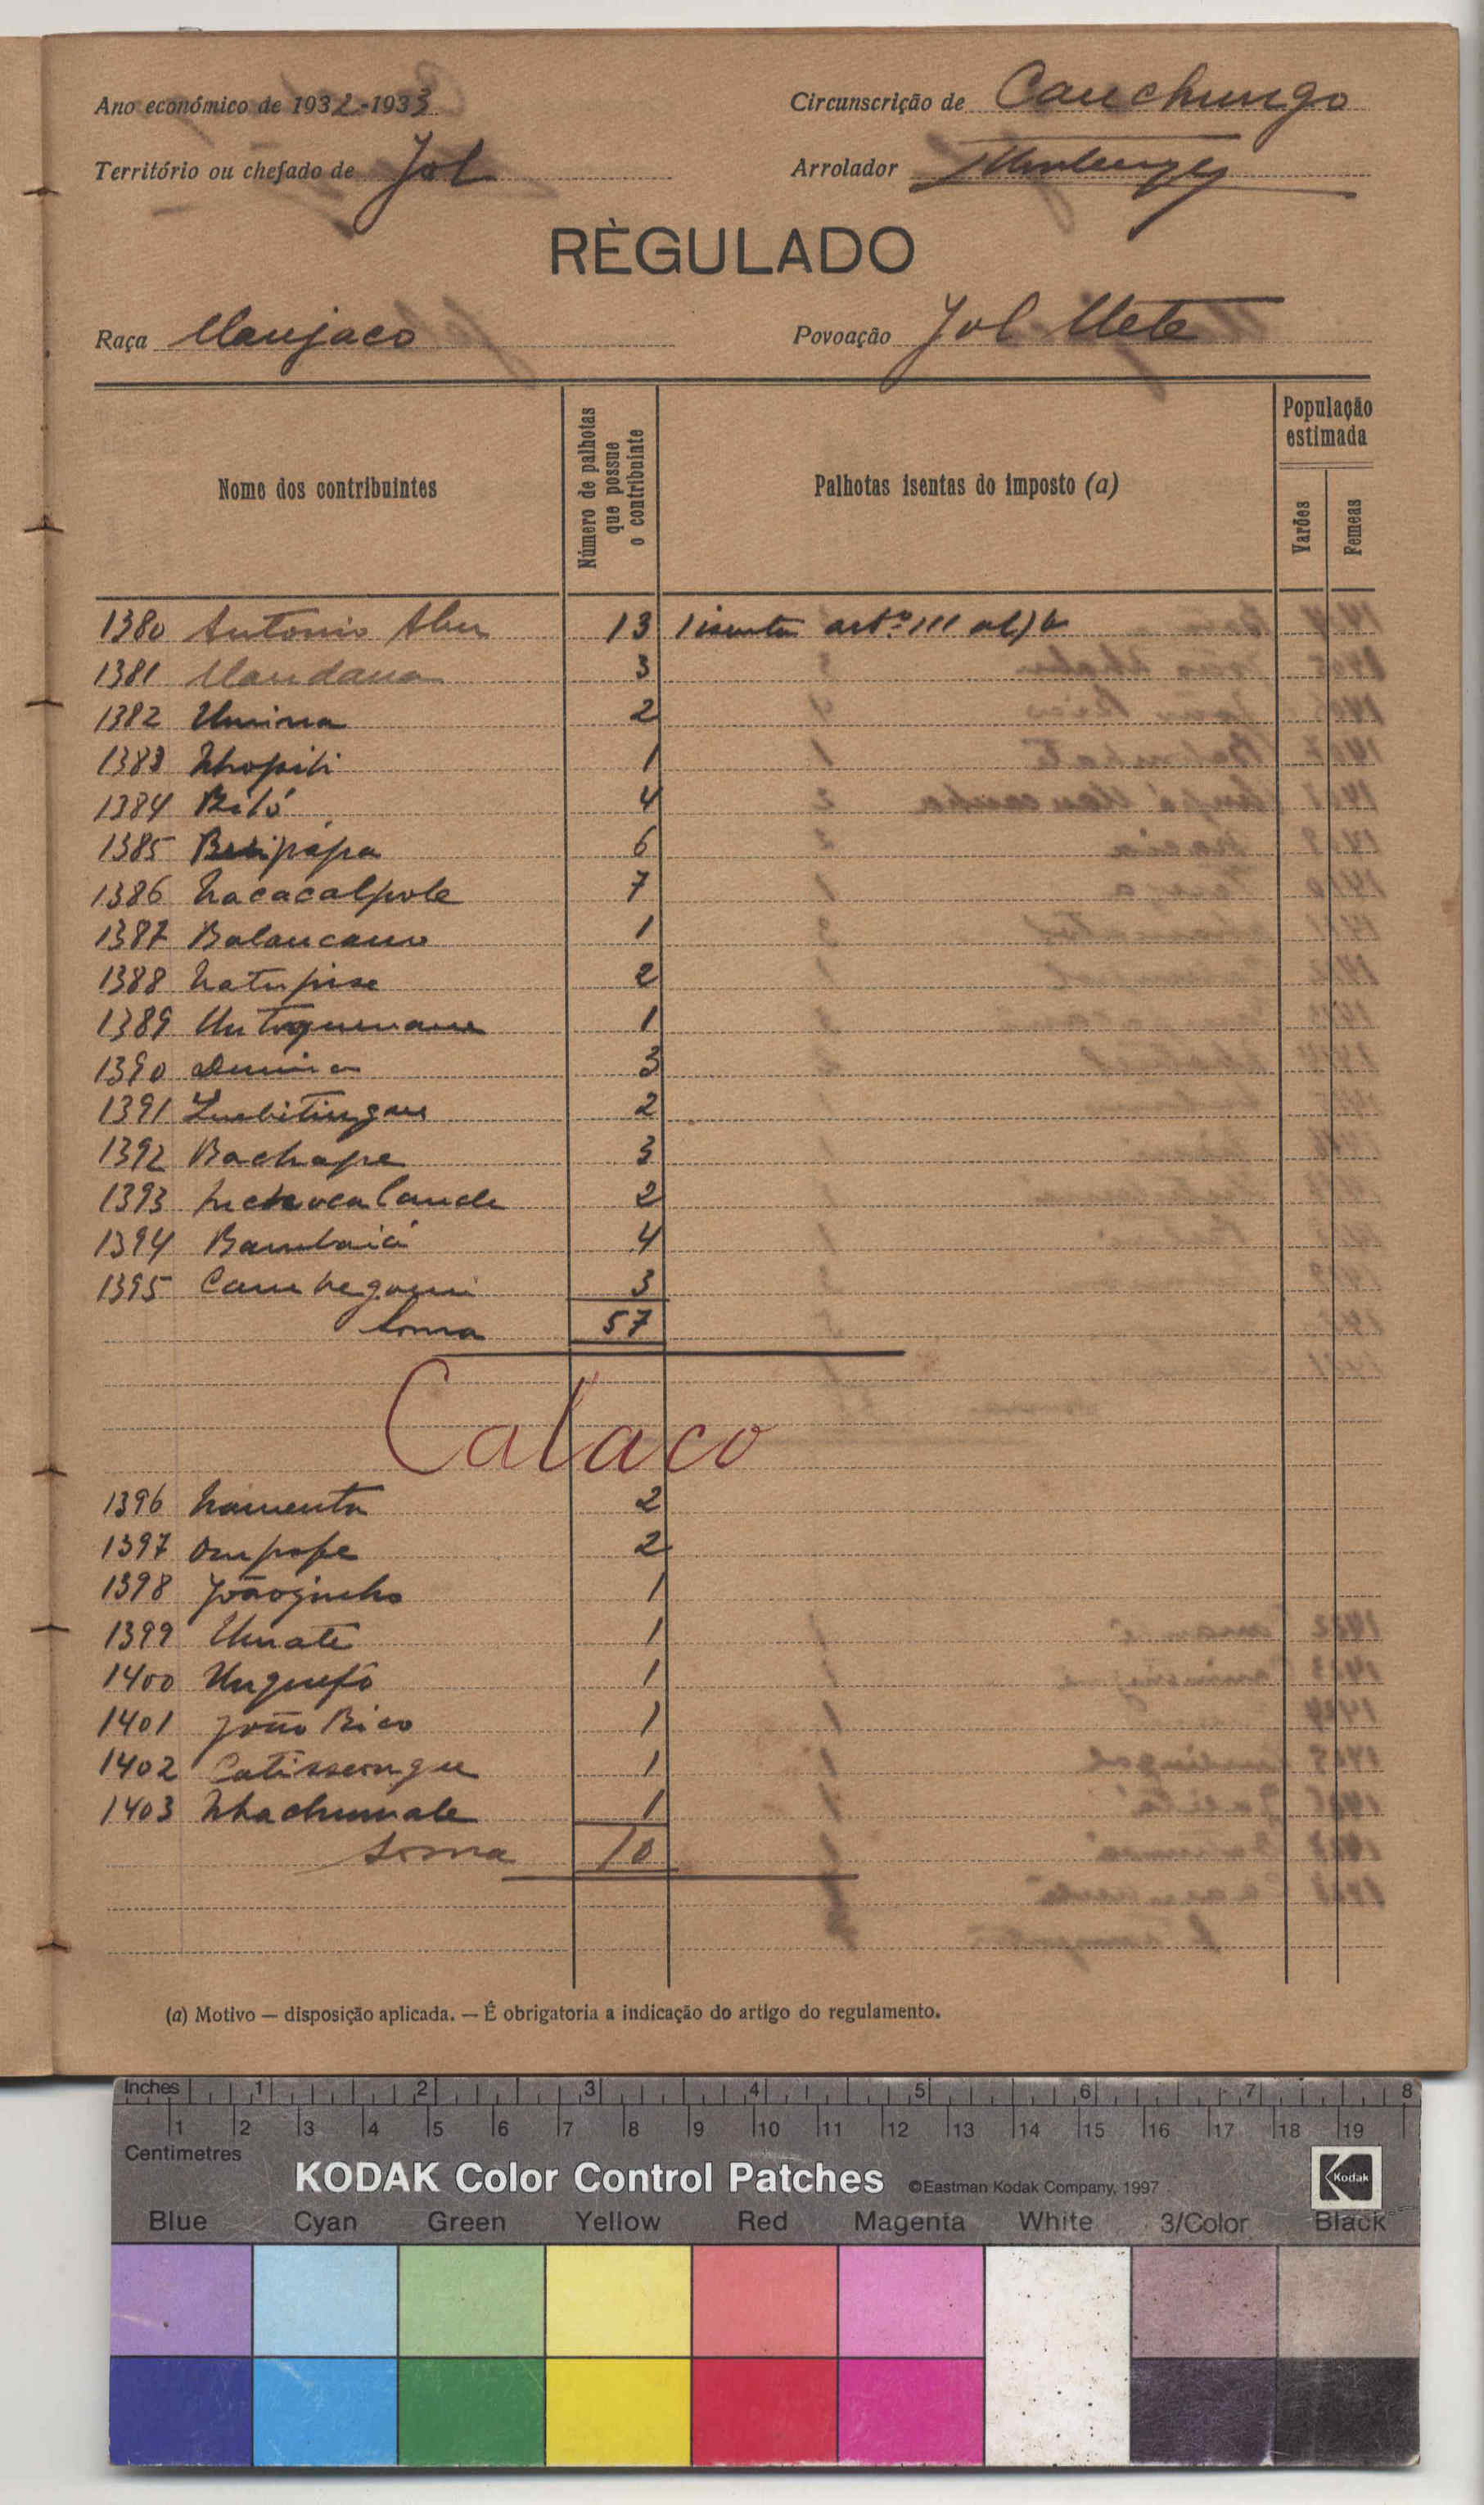 Ano económico de 1932-1933
Circunscrição de Cauchungo
Território ou chefado de Jol
Arrolador
RÈGULADO
Raça Manjaco
Povoação Jol Mete
Nome dos contribuintes
Número de palhotas que possue o contribuinte
Palhotas isentas do imposto (a)
População estimada
Varões
Femeas
1380 Antonio 13 1 isenta artº 111 al) b
1381 Mandana 3
1382 Umina 2
1383 Nhopiti 1
1384 Biló 4
1385 6
1386 Nacacalpole 7
1387 Balancano 1
1388 Natupise 2
1389 1
1390 3
1391 2
1392 Bachape 3
1393 2
1394 Bambaiá 4
1395 3
Soma 57
Calaco
1396 Namenta 2
1397 Ompope 2
1398 Joãoginho 1
1399 Umate 1
1400 Unguefô 1
1401 João Bico 1
1402 Catissengue 1
1403 Nhachumale 1
Soma 10
(a) Motivo — disposição aplicada. — É obrigatoria a indicação do artigo do regulamento.
Inches 1 2 3 4 5 6 7 8
1 2 3 4 5 6 7 8 9 10 11 12 13 14 15 16 17 18 19
Centimetres
KODAK Color Control Patches ©Eastman Kodak Company, 1997 Kodak
Blue Cyan Green Yellow Red Magenta White 3/Color Black